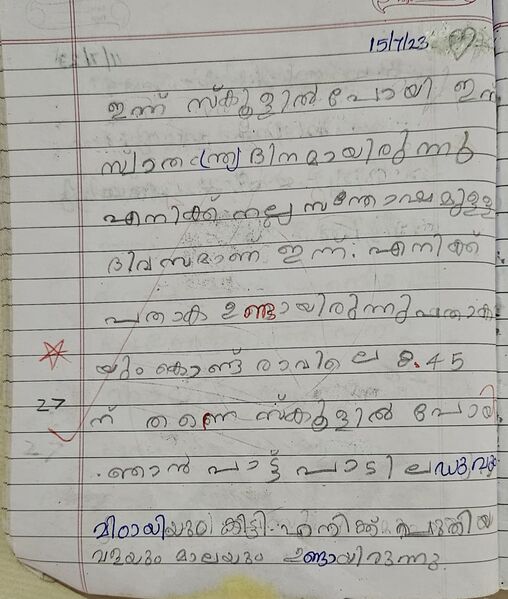 15/7/23
ഇന്ന് സ്കൂളിൽ പോയി ഇന്ന
സ്വാതന്ത്ര്യദിനമായിരുന്നു
എനിക്ക് നല്ല സന്തോഷമുള്ള
ദിവസമാണ് ഇന്ന്. എനിക്ക്
പതാക ഉണ്ടായിരുന്നു പതാക
യും കൊണ്ട് രാവിലെ 8.45
27
ന് തന്നെ സ്കൂളിൽ പോയി
ഞാൻ പാട്ട് പാടി ലഡുവും
മിഠായിയും കിട്ടി. എനിക്ക് പുതിയ
വളയും മാലയും ഉണ്ടായിരുന്നു.